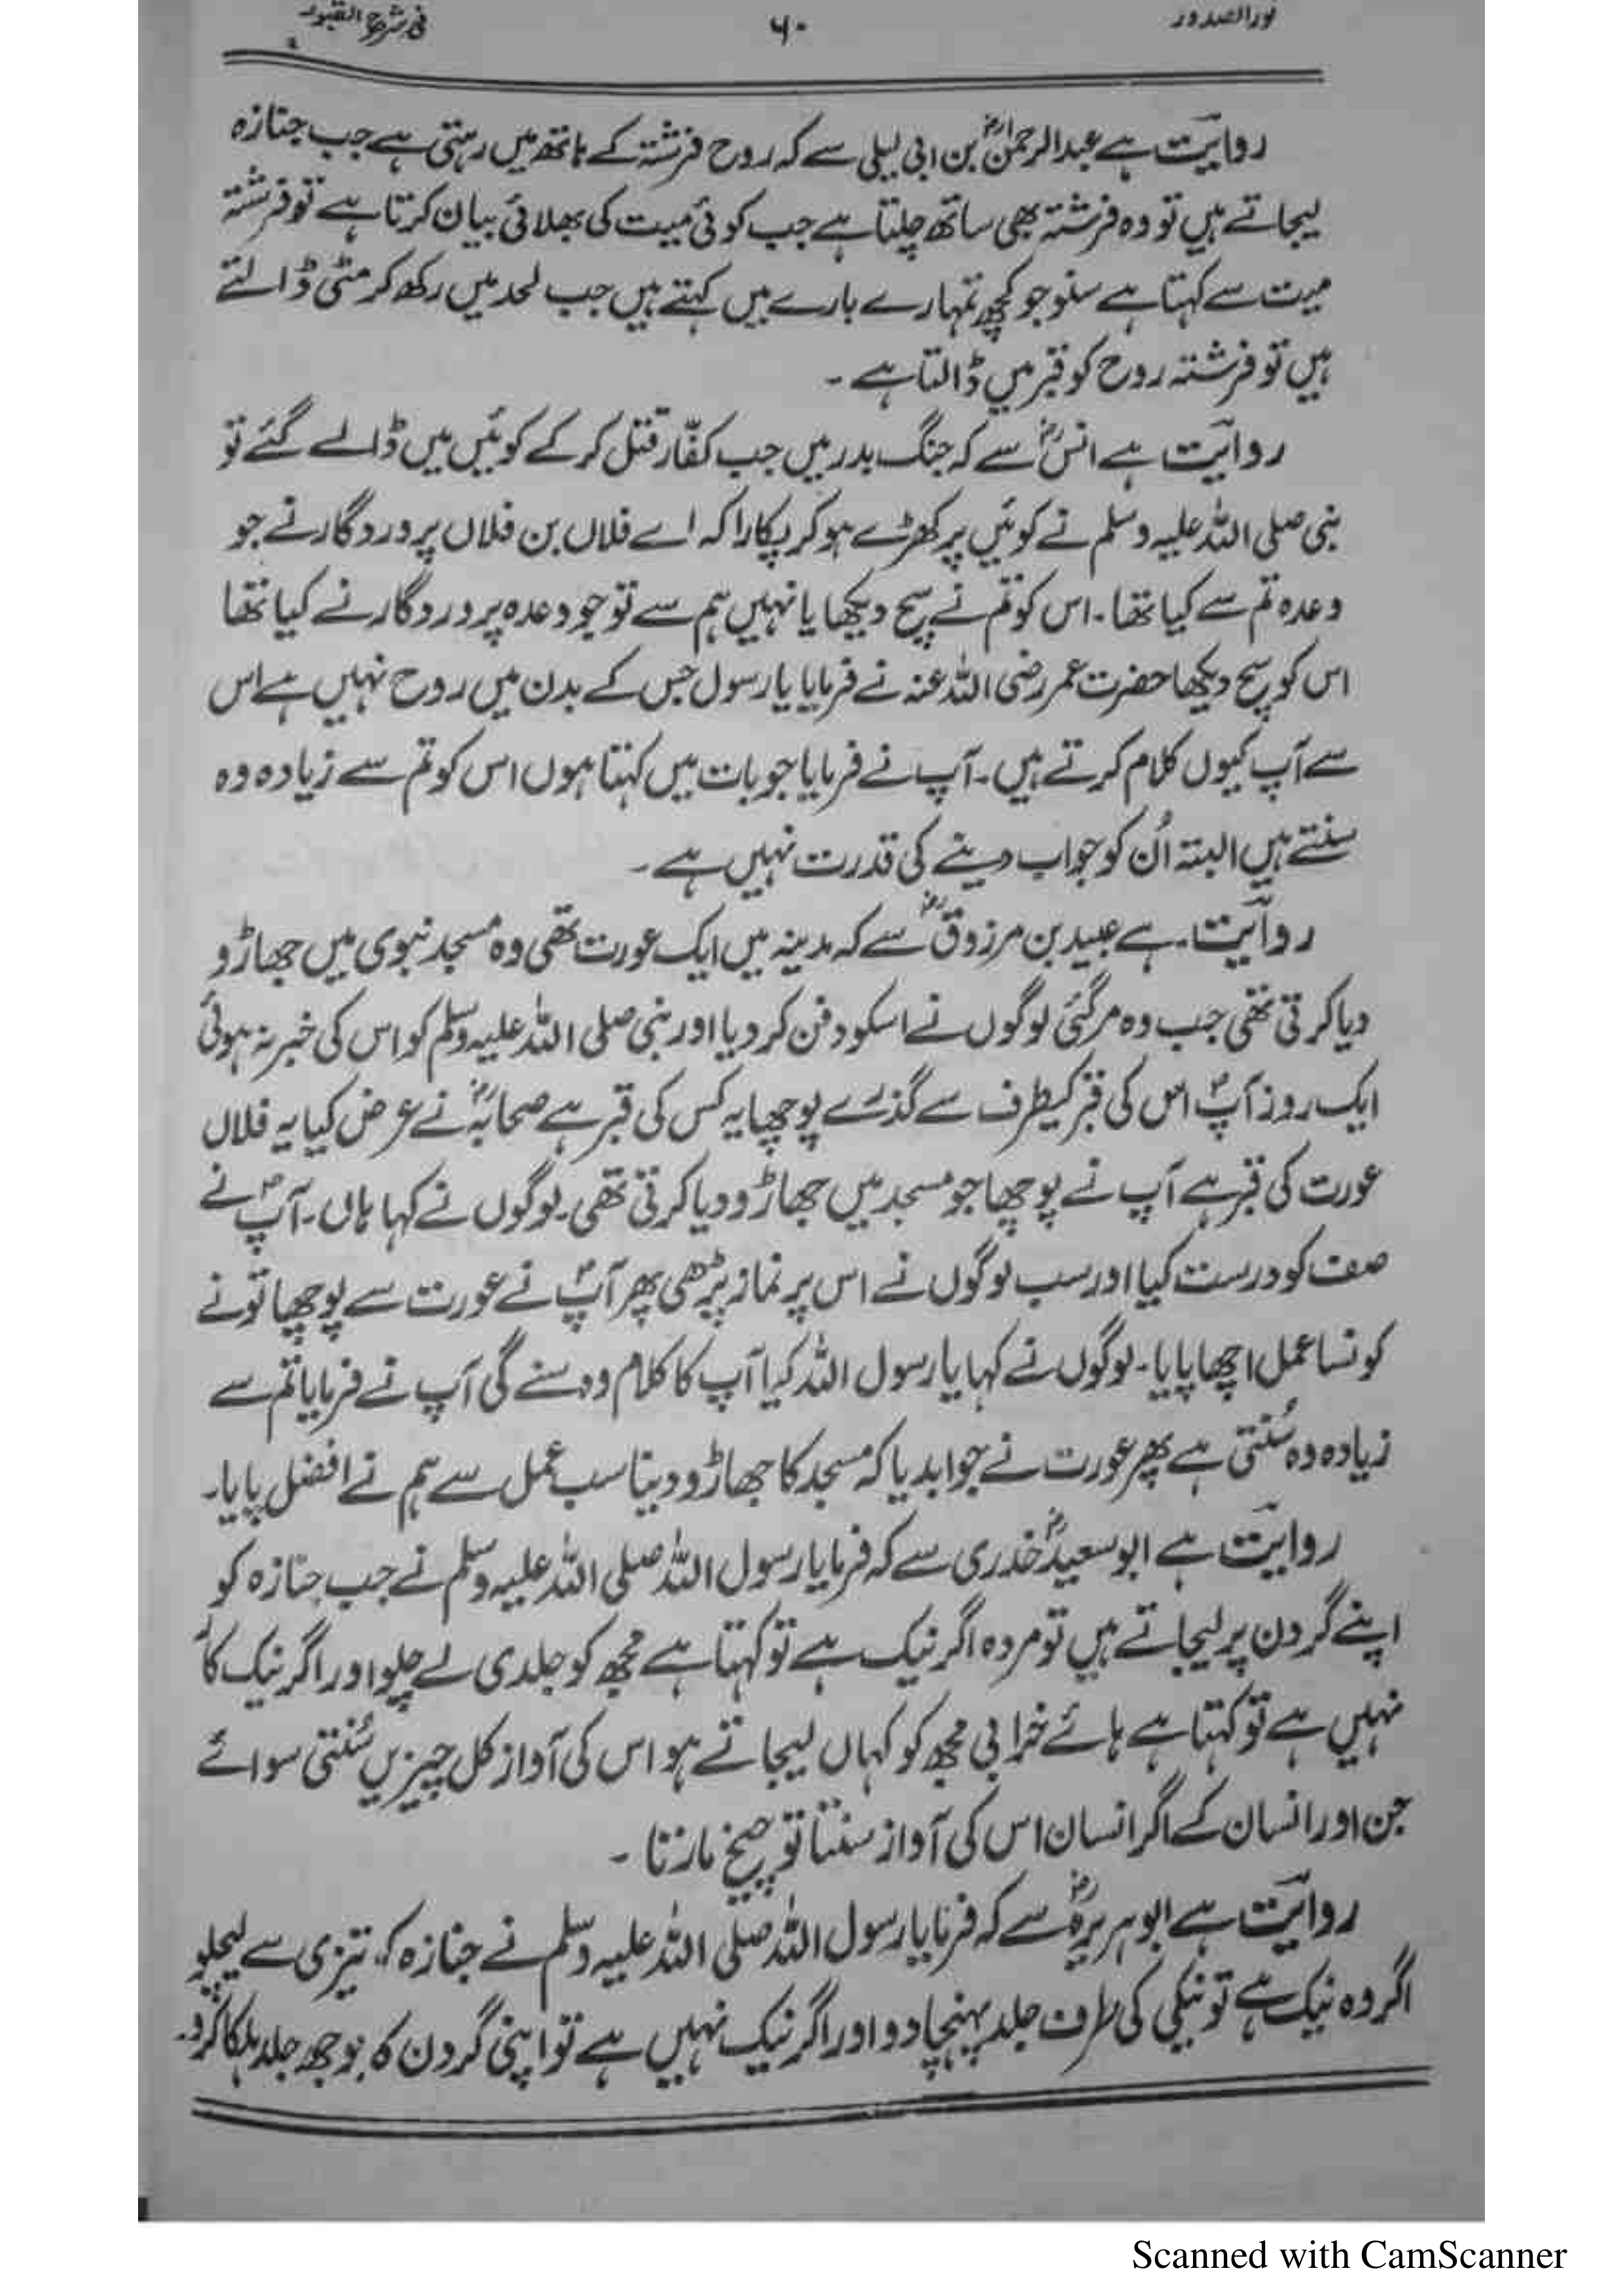 نور الصدور ۶۰ فی شرح القبور
روایت ہے عبدالرحمنؓ بن ابی لیلی سے کہ روح فرشتہ کے ہاتھ میں رہتی ہے جب جنازہ
لیجاتے ہیں تو وہ فرشتہ بھی ساتھ چلتا ہے جب کوئی میت کی بھلائی بیان کرتا ہے تو فرشتہ
میت سے کہتا ہے سنو جو کچھ تمہارے بارے میں کہتے ہیں جب لحد میں رکھ کر مٹی ڈالتے
ہیں تو فرشتہ روح کو قبر میں ڈالتا ہے ۔
روایت ہے انسؓ سے کہ جنگ بدر میں جب کفّار قتل کر کے کوئیں میں ڈالے گئے تو
نبی صلی اللہ علیہ وسلم نے کوئیں پر کھڑے ہو کر پکارا کہ اے فلاں بن فلاں پروردگار نے جو
وعدہ تم سے کیا تھا ۔ اس کو تم نے سچ دیکھا یا نہیں ہم سے تو جو وعدہ پروردگار نے کیا تھا
اس کو سچ دیکھا حضرت عمر رضی اللہ عنہ نے فرمایا یا رسول جس کے بدن میں روح نہیں ہے اس
سے آپ کیوں کلام کرتے ہیں ۔ آپ نے فرمایا جو بات میں کہتا ہوں اس کو تم سے زیادہ وہ
سنتے ہیں البتہ اُن کو جواب دینے کی قدرت نہیں ہے ۔
روایت ۔ ہے عبید بن مرزوقؓ سے کہ مدینہ میں ایک عورت تھی وہ مسجد نبوی میں جھاڑو
دیا کرتی تھی جب وہ مر گئی لوگوں نے اسکو دفن کر دیا اور نبی صلی اللہ علیہ وسلم کو اس کی خبر نہ ہوئی
ایک روز آپؐ اس کی قبر کیطرف سے گذرے پوچھا یہ کس کی قبر ہے صحابہؓ نے عرض کیا یہ فلاں
عورت کی قبر ہے آپ نے پوچھا جو مسجد میں جھاڑو دیا کرتی تھی ۔ لوگوں نے کہا ہاں ۔ آپؐ نے
صف کو درست کیا اور سب لوگوں نے اس پر نماز پڑھی پھر آپؐ نے عورت سے پوچھا تو نے
کونسا عمل اچھا پایا ۔ لوگوں نے کہا یا رسول اللہ کیا آپ کا کلام وہ سنے گی آپ نے فرمایا تم سے
زیادہ وہ سُنتی ہے پھر عورت نے جوابدیا کہ مسجد کا جھاڑو دینا سب عمل سے ہم نے افضل پایا ۔
روایت ہے ابوسعیدؓ خدری سے کہ فرمایا رسول اللہ صلی اللہ علیہ وسلم نے جب جنازہ کو
اپنے گردن پر لیجاتے ہیں تو مردہ اگر نیک ہے تو کہتا ہے مجھ کو جلدی لے چلو اور اگر نیک کا
نہیں ہے تو کہتا ہے ہائے خرابی مجھ کو کہاں لیجاتے ہو اس کی آواز کل چیزیں سُنتی سوائے
جن اور انسان کے اگر انسان اس کی آواز سنتا تو چیخ مارتا ۔
روایت ہے ابوہریرہؓ سے کہ فرمایا رسول اللہ صلّی اللہ علیہ وسلم نے جنازہ کو تیزی سے لیچلو
اگر وہ نیک ہے تو نیکی کی طرف جلد پہنچا دو اور اگر نیک نہیں ہے تو اپنی گردن کا بوجھ جلد ہلکا کرو ۔
Scanned with CamScanner